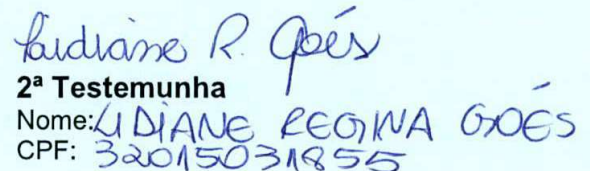 Lidiane R. Goés
2ª Testemunha
Nome: LIDIANE REGINA GOES
CPF: 32015031855